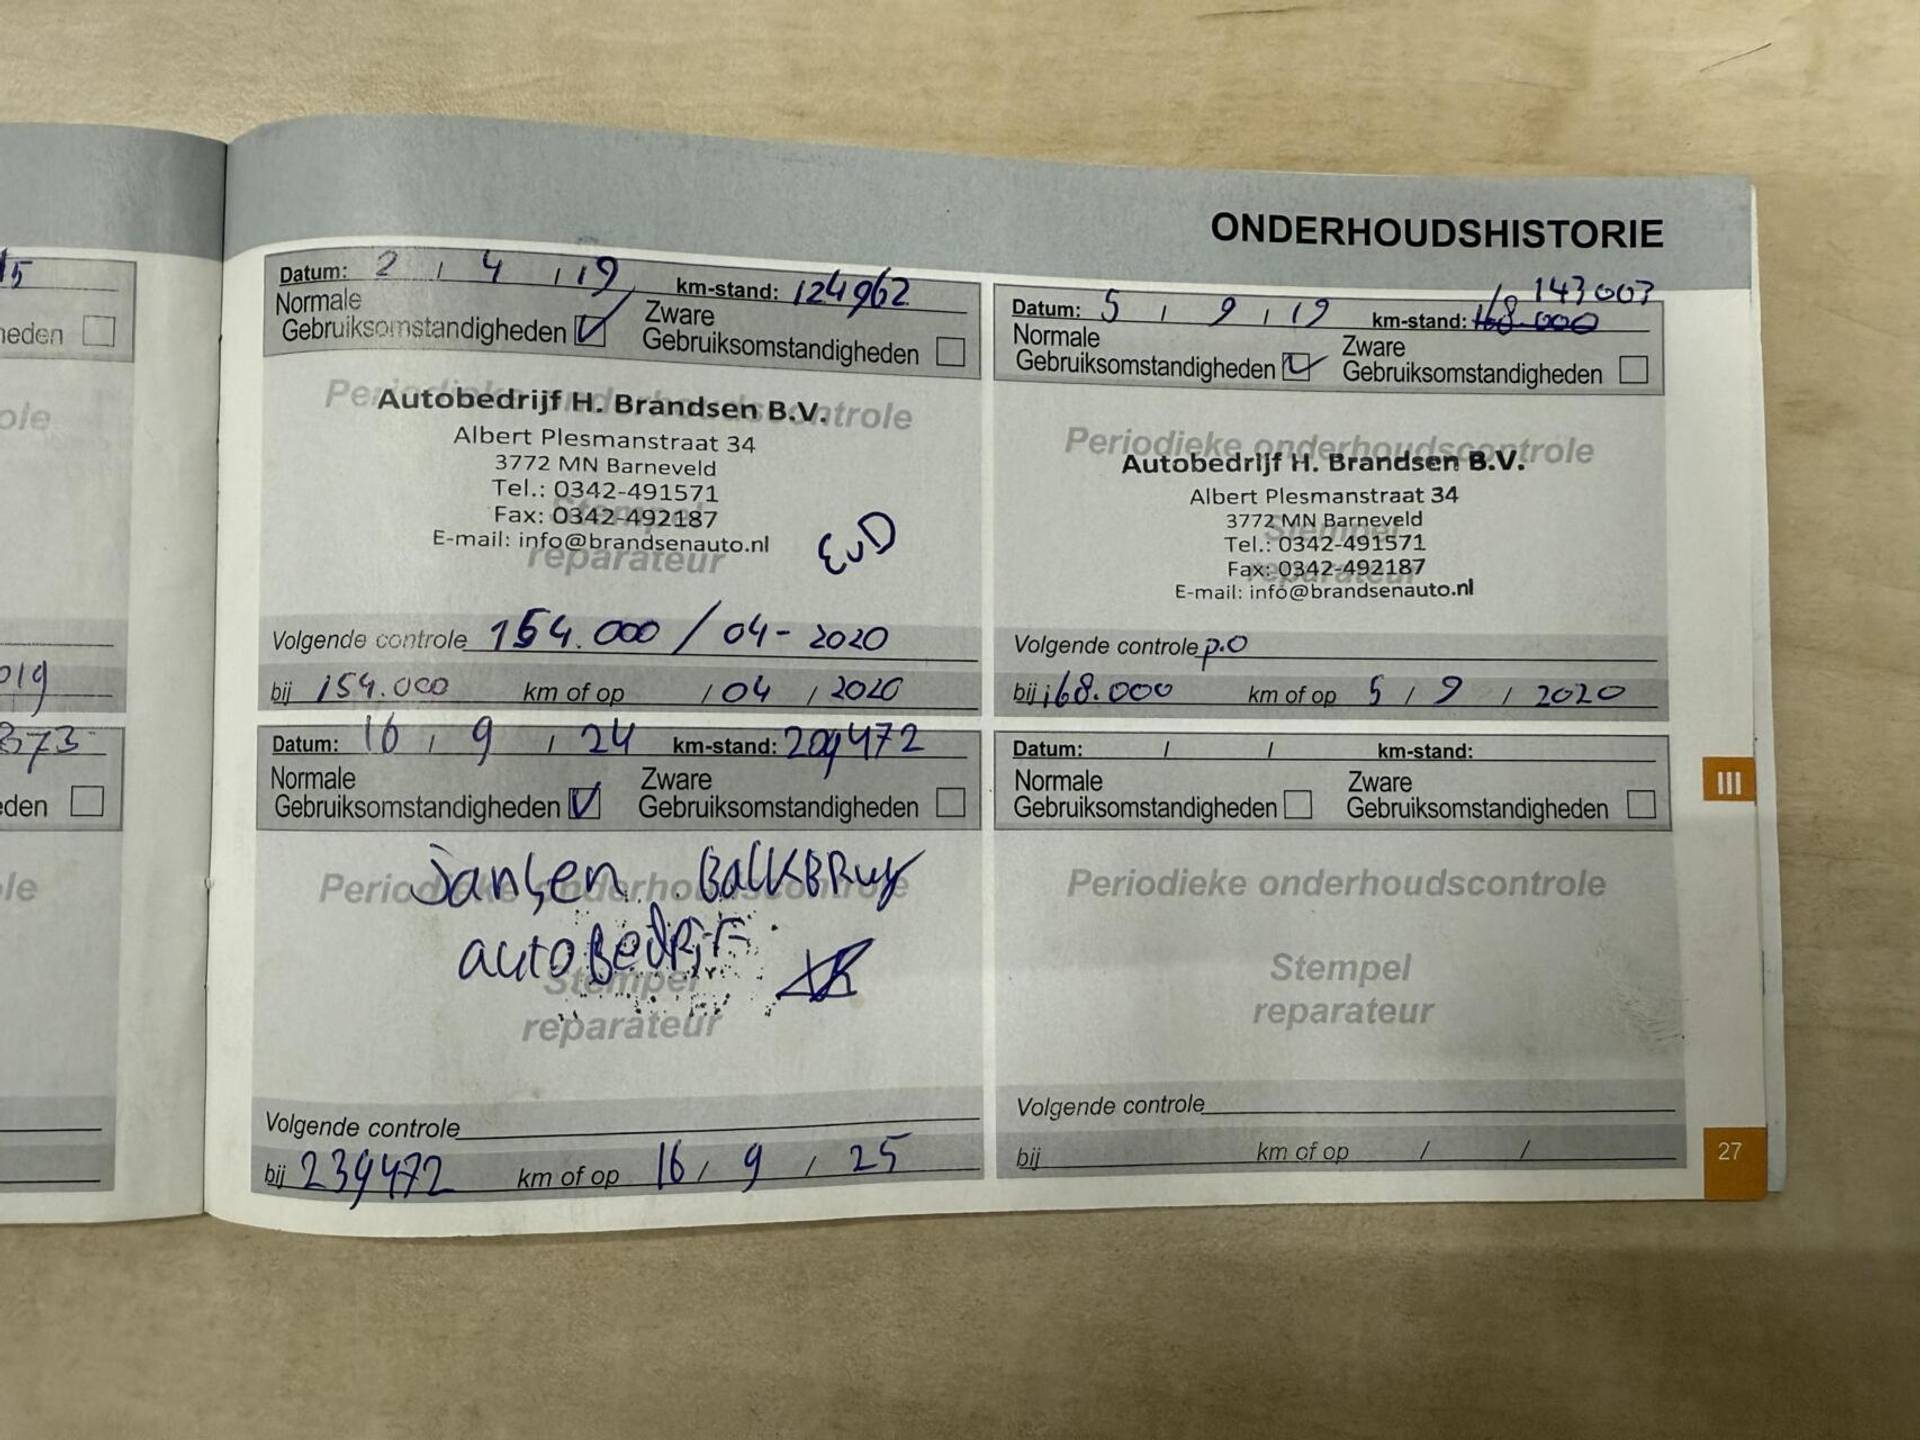 ONDERHOUDSHISTORIE
15
heden
ole
019
873
eden
le
Datum: 2 / 4 / 19 km-stand: 124962
Normale
Gebruiksomstandigheden
Zware
Gebruiksomstandigheden
Periodieke onderhoudscontrole
Autobedrijf H. Brandsen B.V.
Albert Plesmanstraat 34
3772 MN Barneveld
Tel.: 0342-491571
Stempel
Fax: 0342-492187
E-mail: info@brandsenauto.nl
reparateur
EvD
Volgende controle 154.000 / 04- 2020
bij 154.000 km of op / 04 / 2020
143003
Datum: 5 / 9 / 19 km-stand: 168.000
Normale
Gebruiksomstandigheden
Zware
Gebruiksomstandigheden
Periodieke onderhoudscontrole
Autobedrijf H. Brandsen B.V.
Albert Plesmanstraat 34
3772 MN Barneveld
Stempel
Tel.: 0342-491571
Fax: 0342-492187
reparateur
E-mail: info@brandsenauto.nl
Volgende controle p.o
bij 168.000 km of op 5 / 9 / 2020
Datum: 16 / 9 / 24 km-stand: 209472
Normale
Gebruiksomstandigheden
Zware
Gebruiksomstandigheden
Periodieke onderhoudscontrole
Jansen BalkBRug
autoBedRijF
Stempel
reparateur
Volgende controle
bij 239472 km of op 16 / 9 / 25
Datum: / / km-stand:
Normale
Gebruiksomstandigheden
Zware
Gebruiksomstandigheden
Periodieke onderhoudscontrole
Stempel
reparateur
Volgende controle
bij km of op / /
III
27